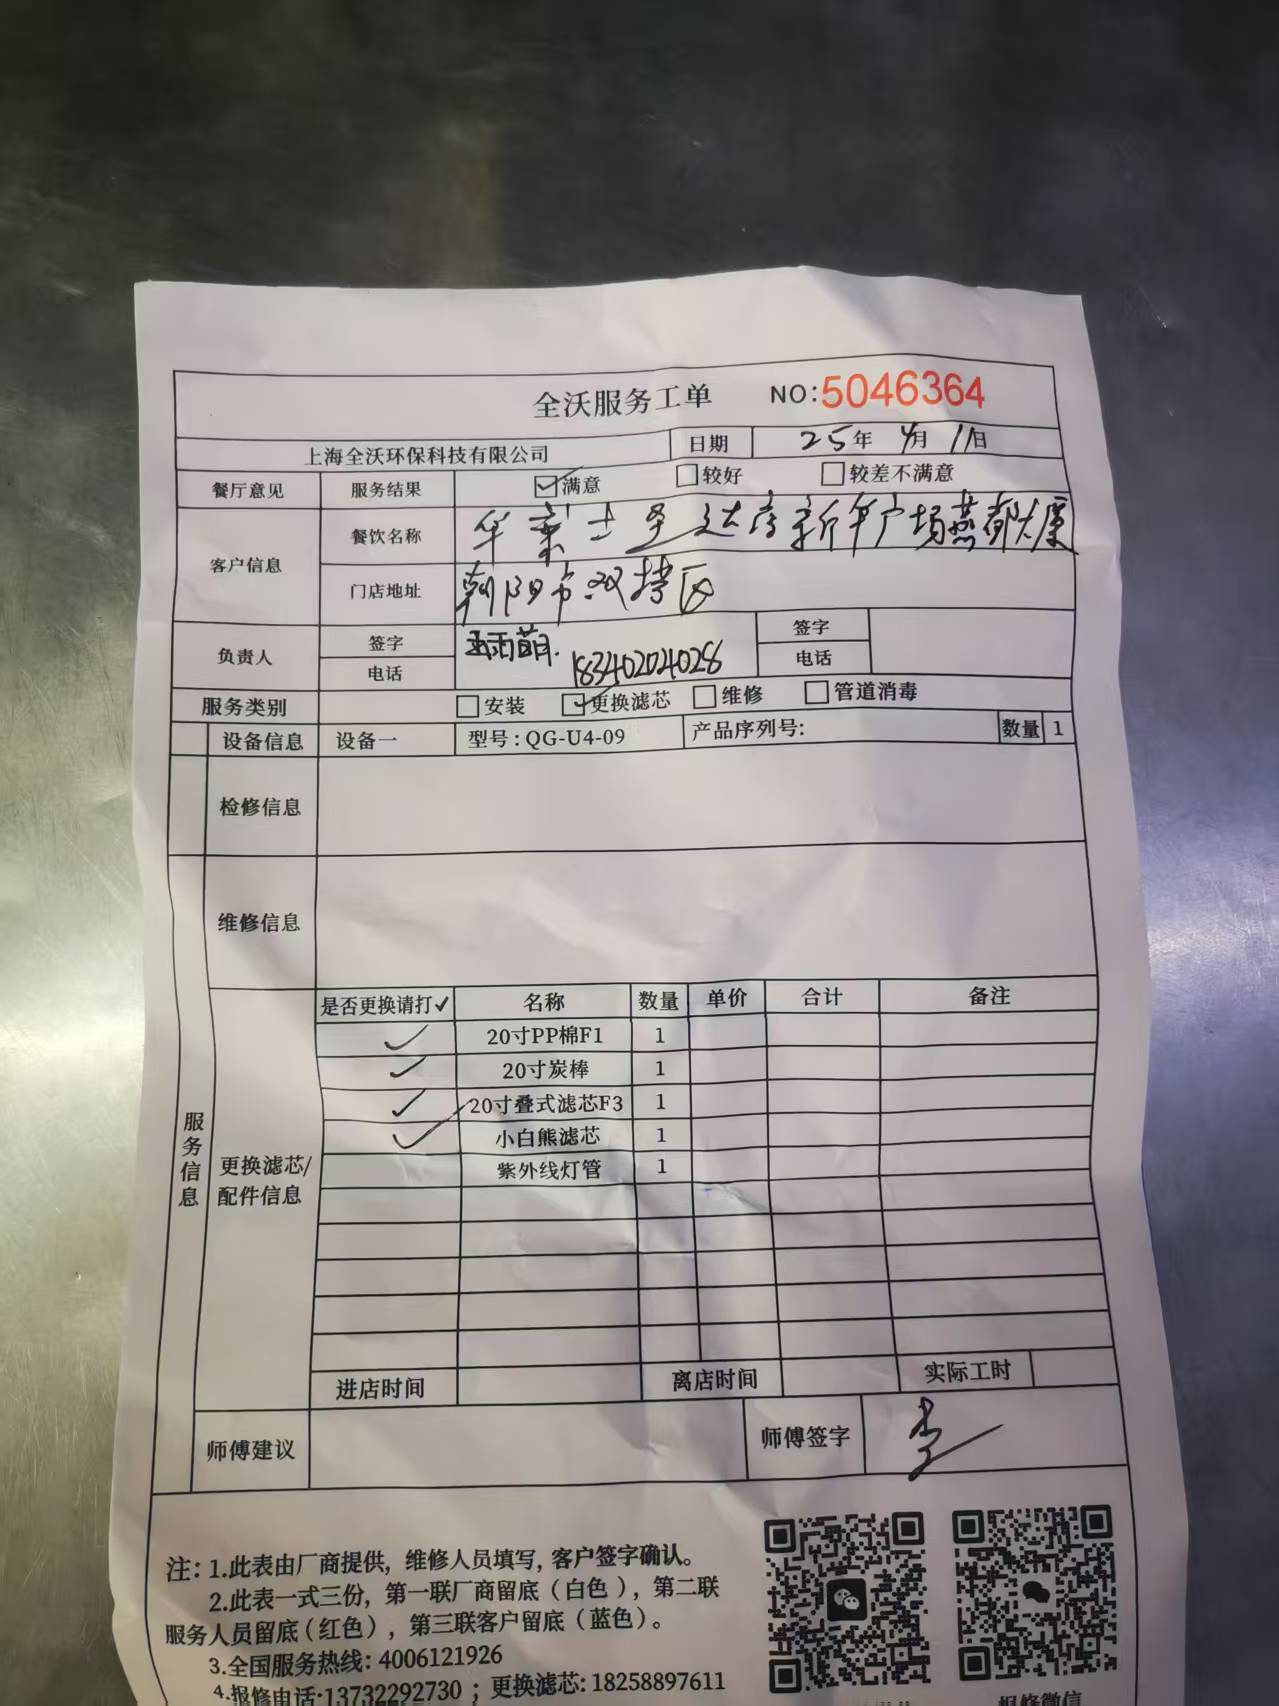 全沃服务工单 NO:5046364
上海全沃环保科技有限公司 日期 25年 4月 11日
餐厅意见 服务结果 ☑满意 □较好 □较差不满意
客户信息 餐饮名称 华莱士 达 新 广场燕都大厦
门店地址 朝阳市双塔区
负责人 签字 雨萌 签字
电话 18340204028 电话
服务类别 □安装 ☑更换滤芯 □维修 □管道消毒
设备信息 设备一 型号:QG-U4-09 产品序列号: 数量 1
检修信息
维修信息
服务信息
更换滤芯/配件信息
是否更换请打✓ 名称 数量 单价 合计 备注
✓ 20寸PP棉F1 1
✓ 20寸炭棒 1
✓ 20寸叠式滤芯F3 1
✓ 小白熊滤芯 1
紫外线灯管 1
进店时间 离店时间 实际工时
师傅建议 师傅签字 李
注: 1.此表由厂商提供, 维修人员填写, 客户签字确认。
2.此表一式三份, 第一联厂商留底(白色), 第二联
服务人员留底(红色), 第三联客户留底(蓝色)。
3.全国服务热线: 4006121926
4.报修电话:13732292730 ; 更换滤芯: 18258897611
报修微信